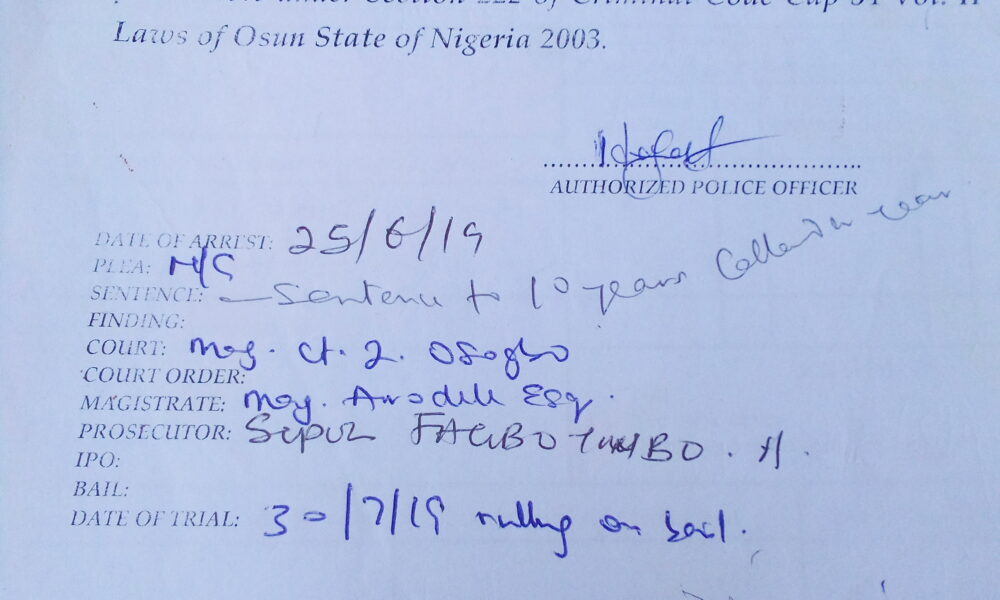 under Section 222 of Criminal Code Cap 34 Vol. II
Laws of Osun State of Nigeria 2003.
AUTHORIZED POLICE OFFICER
DATE OF ARREST: 25/6/19
PLEA: N/G
SENTENCE: Sentence to 10 years Callendar year
FINDING:
COURT: Mag. Ct. 2. Osogbo
COURT ORDER:
MAGISTRATE: Mag. Awodele Esq.
PROSECUTOR: FAGBO
IPO:
BAIL:
DATE OF TRIAL: 30/7/19 rulling on bail.